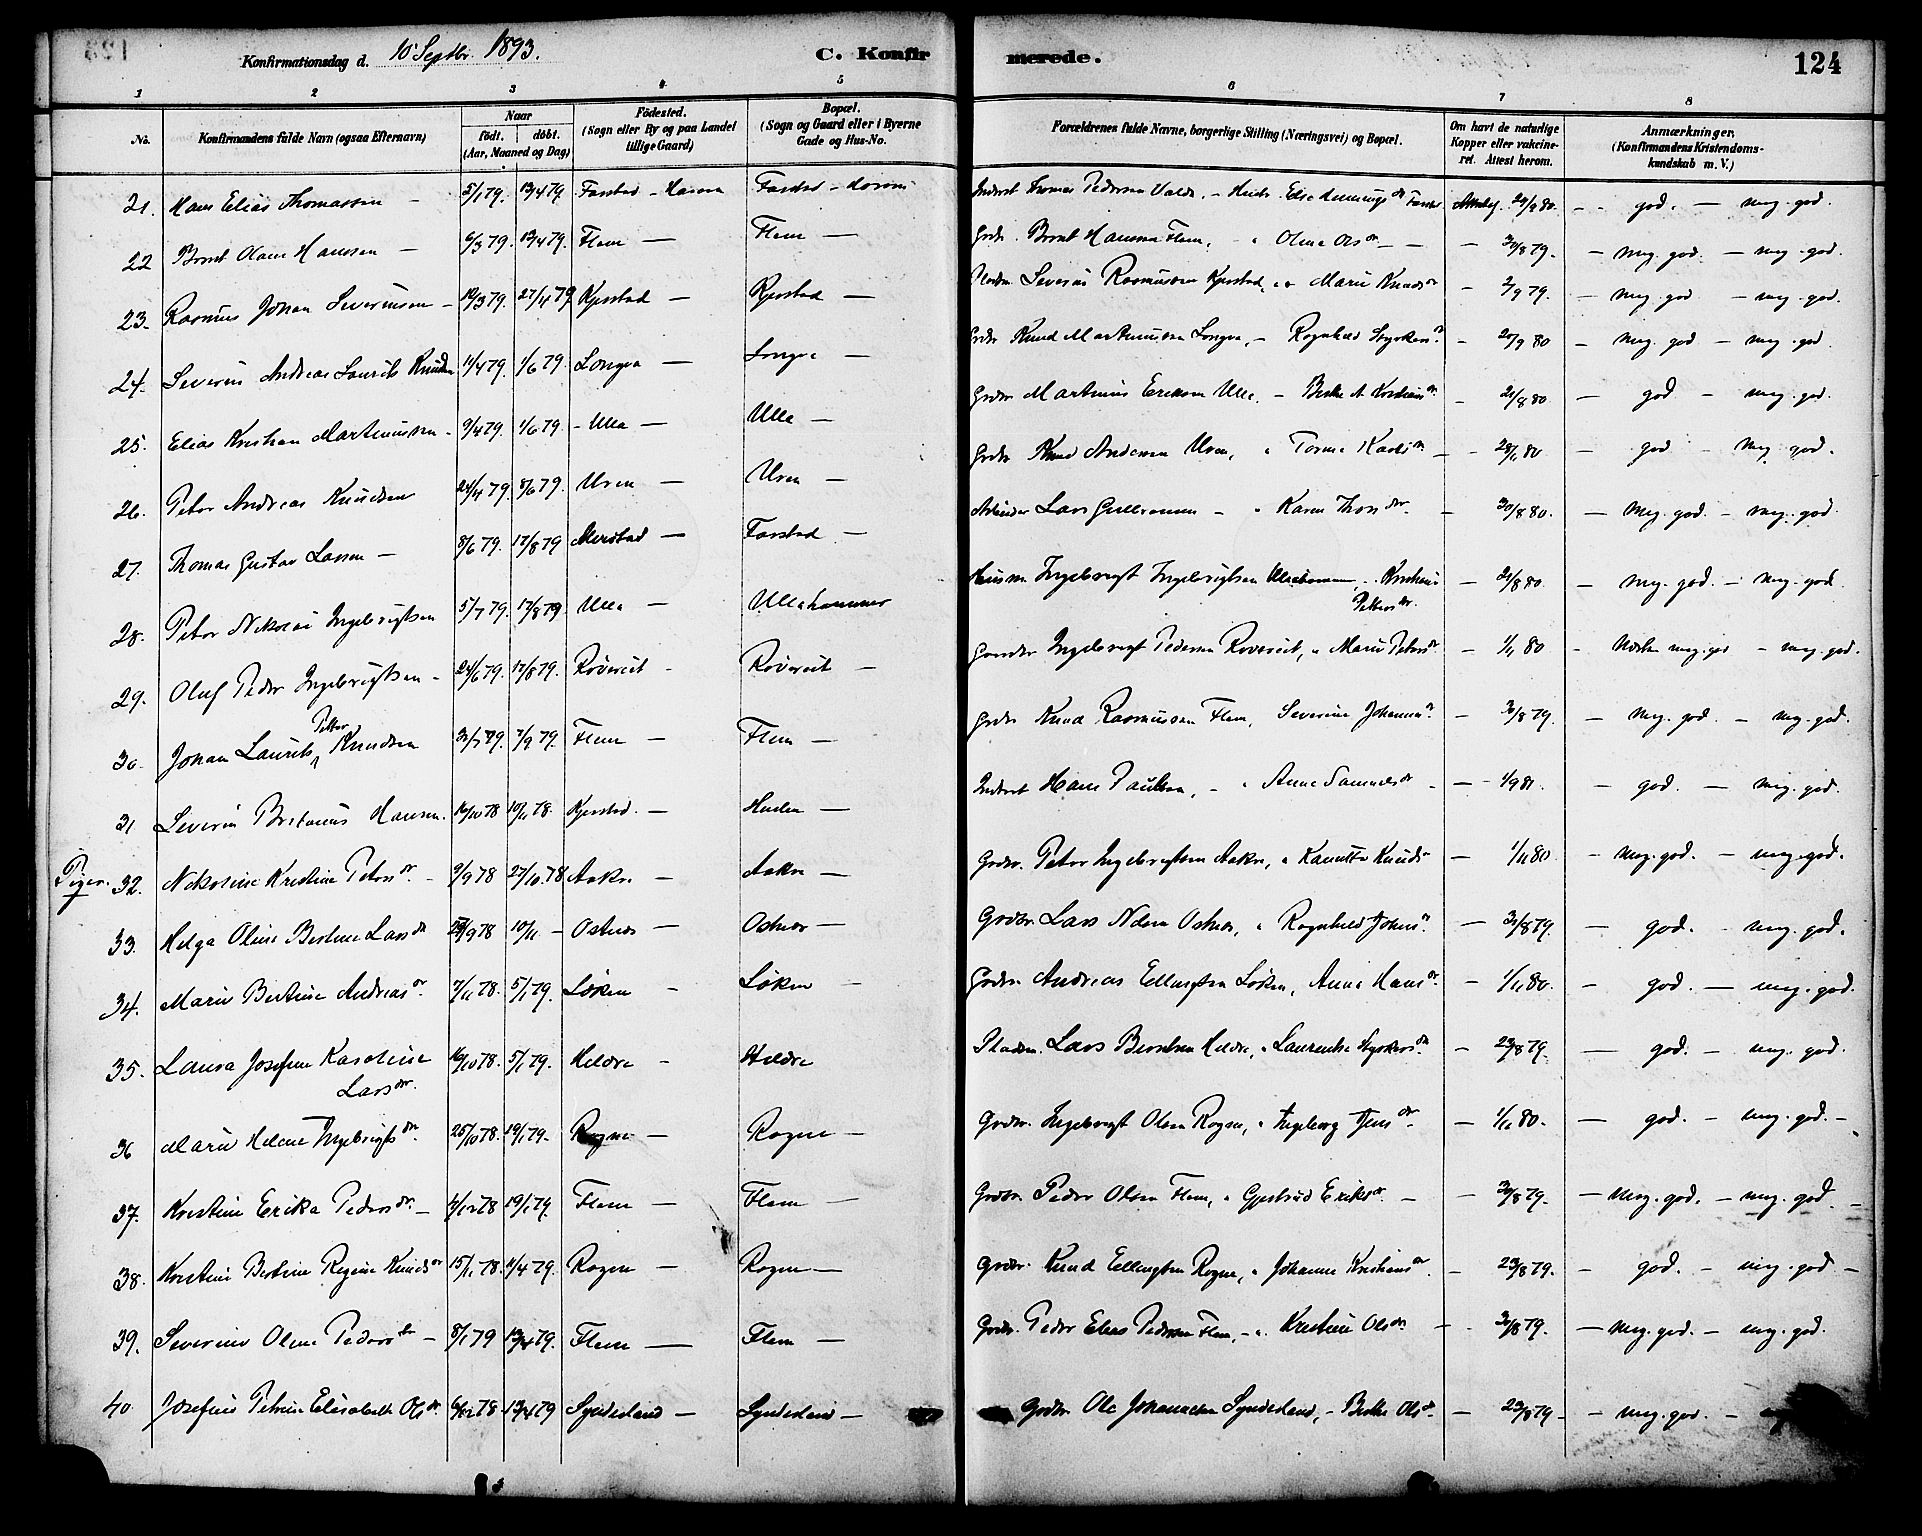 Konfirmationsdag d. 10 Septbr. 1893.
C. Konfir
merede.
124
1 2 3 4 5 6 7 8
No.
Konfirmandens fulde Navn (ogsaa Efternavn)
Naar
födt. döbt.
(Aar, Maaned og Dag)
Födested.
(Sogn eller By og paa Landet
tillige Gaard)
Bopæl.
(Sogn og Gaard eller i Byerne
Gade og Hus-No.
Forældrenes fulde Navne, borgerlige Stilling (Næringsvei) og Bopæl.
Om havt de naturlige
Kopper eller vakcine-
ret. Attest herom.
Anmærkninger.
(Konfirmandens Kristendoms-
kundskab m. V.)
21. Hans Elias Thomassen - 5/1 79. 13/4 79. Farstad - Farstad - Inderst Thomas Pedersen 20/9 80 - god. - meg. god.
22 Bernt Olaus Hansen - 6/3 79. 13/4 79. Flem - Flem - Grdbr. Bernt Hansen Flem, - " Olina Olsdr - - 30/8 79. - meg. god. - meg. god.
23. Rasmus Johan Severinsen - 10/3 79. 27/4 79 Kjerstad - Kjerstad - Severin Rasmussen Kjerstad, Marie Knudsdr - 2/9 79. - meg. god - meg. god.
24. Severin Andreas Laurits Knudsen 11/4 79. 1/6 79. Longva - Longva - Grdbr Knud Martinussen Longva, - Ragnhild Styrkersdr - 20/9 80 - meg. god - meg. god.
25. Elias Kristian Martinussen - 9/4 79. 1/6 79. - Ulla - Ulla - Grdbr. Martinus Eriksen Ulla, - - 21/8 80 - god - meg. god.
26. Peter Andreas Knudsen 24/4 79. 8/6 79. Uren - Uren - Grdbr Knud Andersen Uren, - 28/1 80 - god - meg. god.
27. Thomas Gustav Larsen - 8/6 79. 17/8 79 - Farstad - Arbeider Lars - " Karen - 30/8 80. - meg. god. - meg. god.
28. Peter Nikolai Ingebrigtsen 5/7 79. 17/8 79 Ulla - Ullahammer Husm. Ingebregt Ingebrigtsen Ullahammer - 21/8 80. - meg. god. - meg. god.
Petersdr.
29. Oluf Peder Ingebrigtsen - 24/6 79. 17/8 79. Röverut - Röverut - Ingebregt Pedersen Röverut, " Marie Petersdr - 1/11 80 - meg. god - meg. god.
Petter
30. Johan Laurits Knudsen 31/7 79. 7/9 79. Flem - Flem - Grdbr Knud Rasmussen Flem, Severine - 30/8 79. - meg. god. - meg. god.
31 Severin Hansen. 16/10 78 10/11 78. Kjerstad. - - Inderst Hans Paulsen, - " Anne Samuelsdr - - god. - meg. god.
Piger. 32. Nikoline Kristine Petersdr. - 9/9 78 27/10. 78 Aakre - Aakre - Grdbr. Peter Ingebrigtsen Aakre, " - 1/11 80. - meg. god. - meg. god.
33. Helga Oline Bertine Larsdr 10/11 - Ostnes - Ostnes - Grdbr. Lars Ostnes, " Ragnhild - 31/8 79. - god. - meg. god.
34. Marie Bertine Andreasdr. 7/11 78. 5/1 79. Löken - Löken - Grdbr. Andreas Ellingsen Löken, Anne Hansdr - 1/11 80. - god. - meg. god.
35. Laura Josefine Karoline 16/10 78. 5/1 79. Heldre - Heldre Lars Berntsen Heldre, " Laurentse Styrkersdr. - 23/8 79. - god. - meg. god.
Larsdr.
36 Marie Helene Ingebrigtsdr. 25/10 78. 19/1 79. Rogne - Rogne - Grdbr. Ingebregt Olsen Rogne, " Ingeborg Jensdr. - 1/11 80. - god. - meg. god. -
37. Kristine Erika Pedersdr. - 4/12 78 19/1 79. Flem - Flem - Grdbr. Peder Olsen Flem, " Gjertrud Eriksdr. - - 30/8 79. - meg. god. - meg. god. -
38. Kristine Bertine Regine Knudsdr 15/11 78. 11/4 79. Rogne - Rogne - Grdbr. Knud Ellingsen Rogne, " Johanne Kristiansdr. - 23/8 79. - god. - meg. god -
39. Severine Oline Pedersdr - 8/1 79 13/4 79. Flem - Flem - Grdbr. Peder Elias Pedersen Flem, - " Kristine Olsdr. - - 30/8 79. - meg. god. - meg. god.
40 Josefine Petrine Elisabeth Olsdr. 6/12 78 13/4 79 Synderland - Synderland - Grdbr Ole Johannesen Synderland, - Berthe Olsdr. - 23/8 79 - - meg. god. -